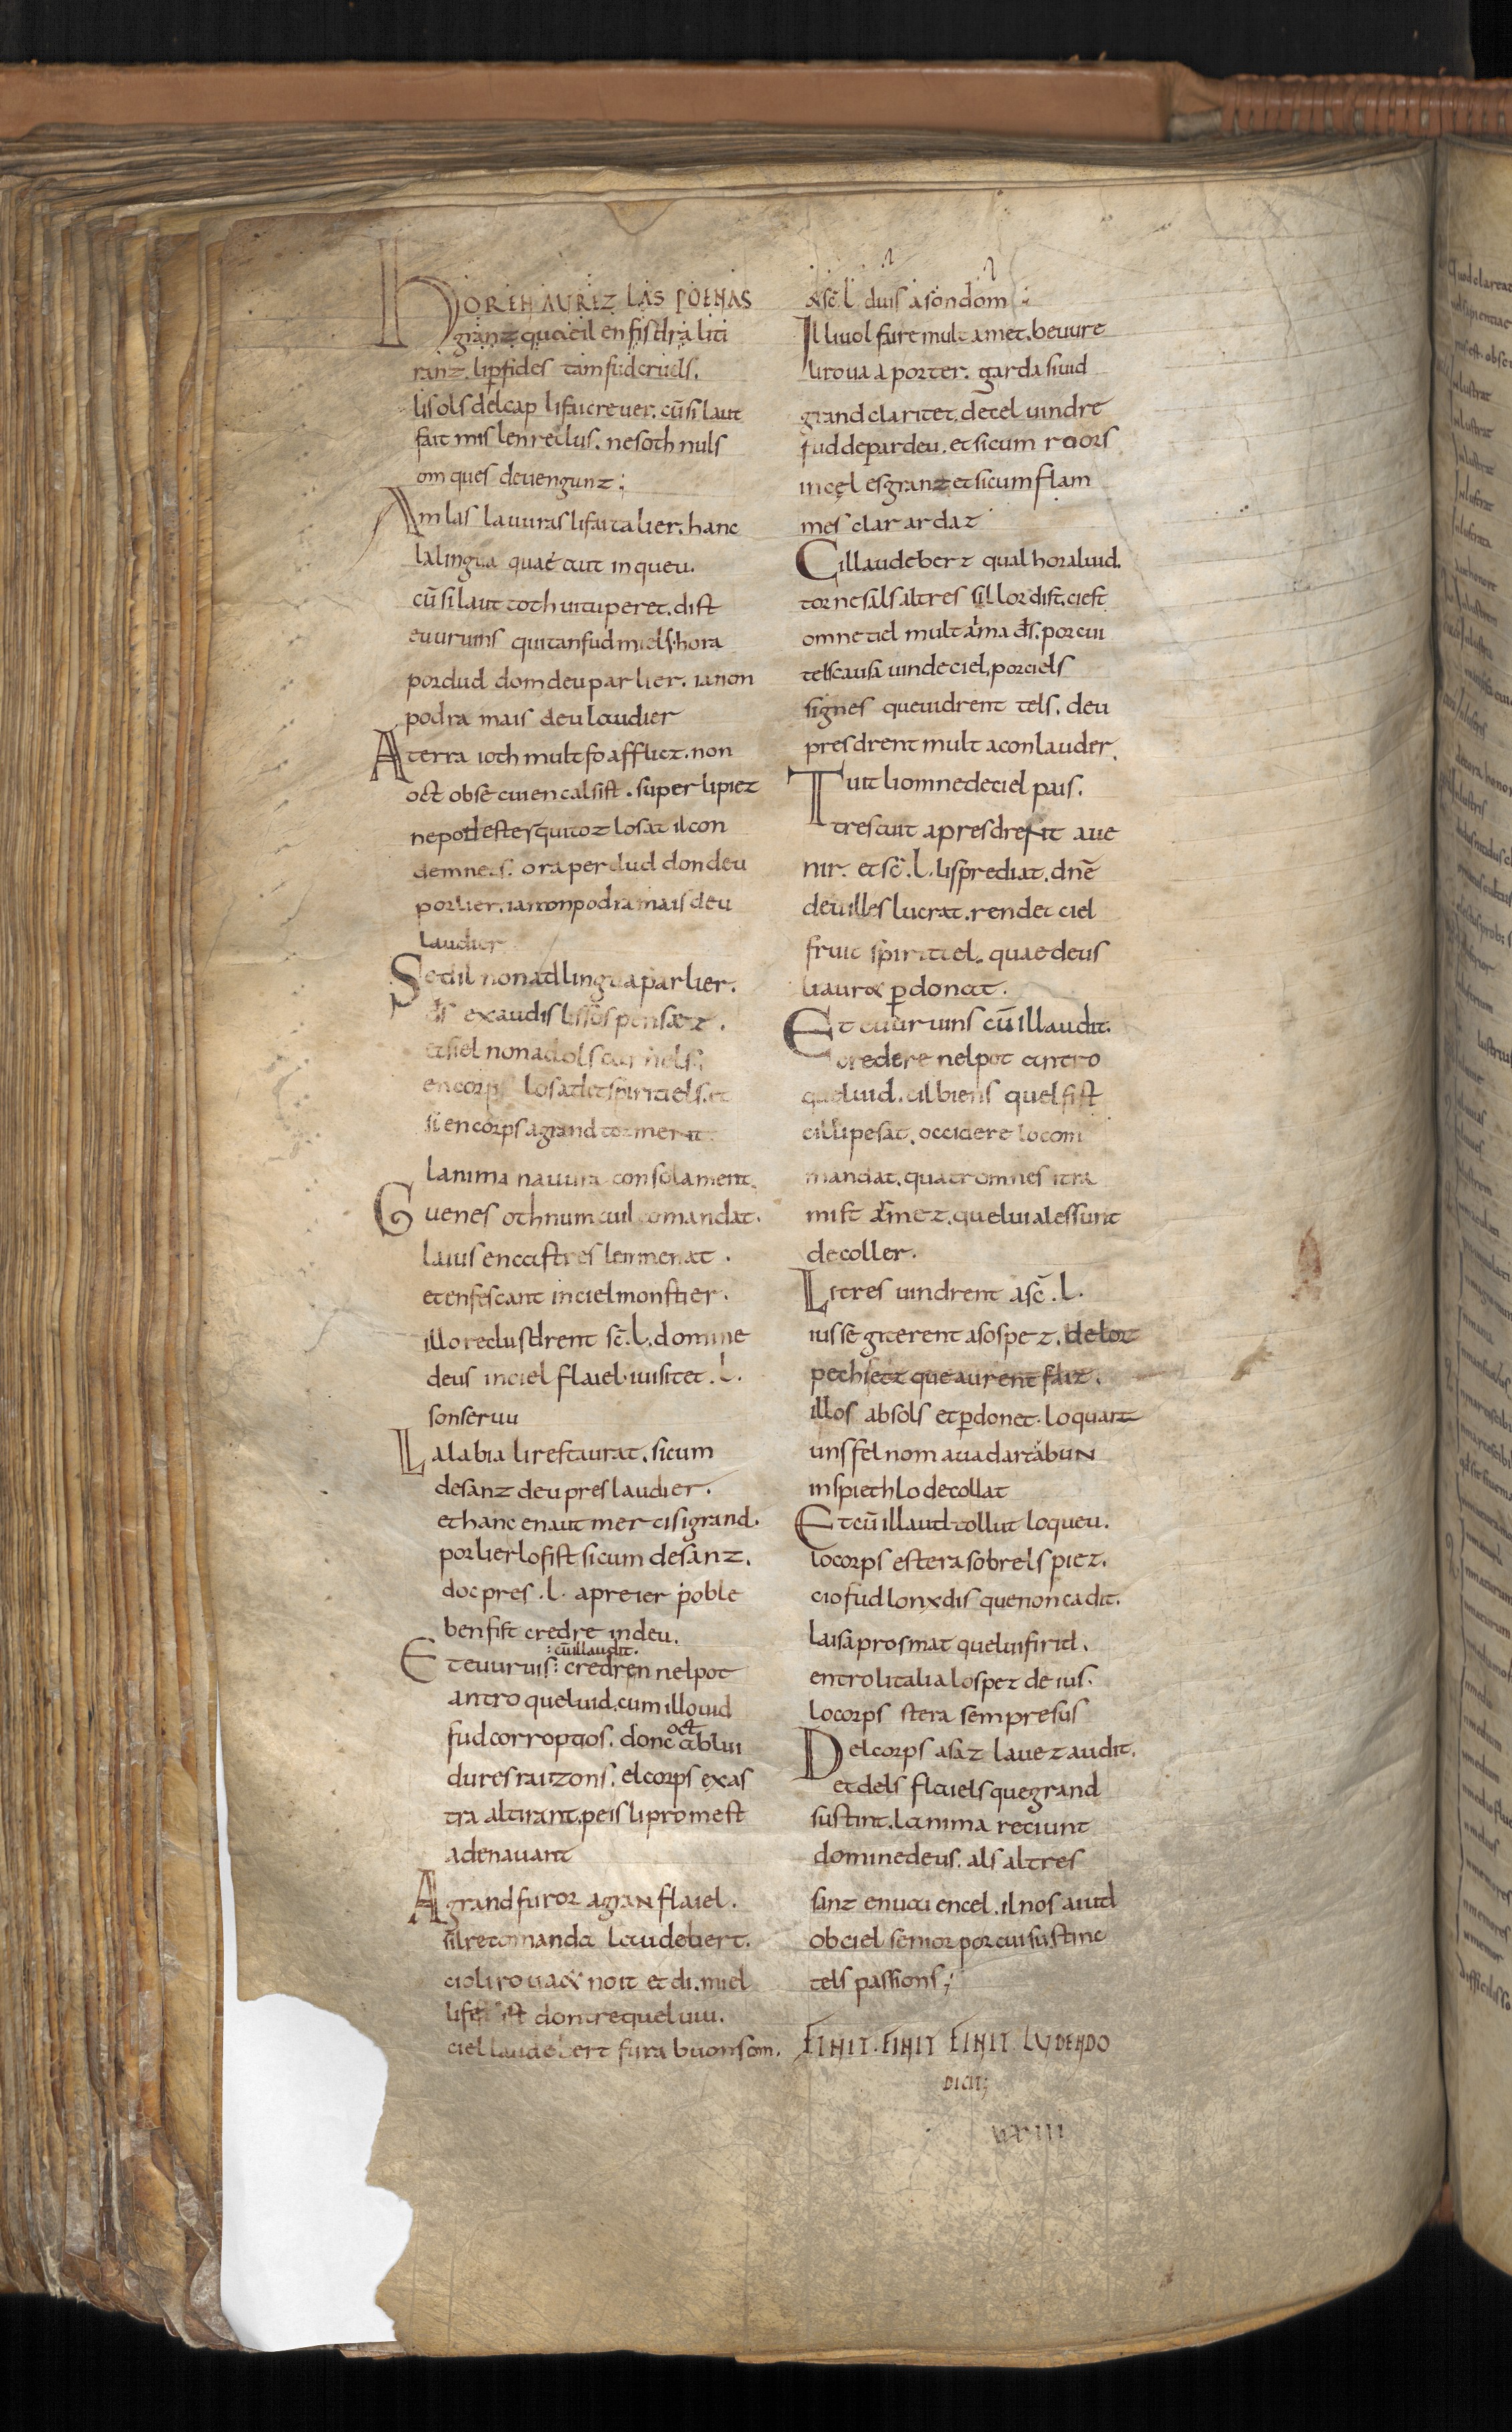 HORENAVREZ LAS POENAS
granz quae il en fisdra liti
ranz. li perfides tam fud cruels.
lisols delcap li fai crever. cū si laut
fait mis len reclus. ne soth nuls
om ques devengunz;
Am las lavuras li fai talier. hanc
la lingua quae aut in queu.
cū si laut toth vituperet. dist
evvruins qui tan fud miels. hora
perdud dom deu parlier. ia non
podra mais deu laudier
A terra ioth mult fo afflicz. non
oct ob se cui en calsist. super li piez
ne pod ester qui toz los at il con
demnets. ora perdud don deu
parlier. ia non podra mais deu
laudier
Sed il non ad lingua parlier.
ds̄ exaudis lis sos pensaez.
et si el non ad ols carnels.
en corps los ad et spiritiels. et
si en corps a grand torment
lanima navura consolament.
Guenes oth num cuil comandat.
la ius en castres len menat.
et en fescant in ciel monstier.
illo reclusdrent sc̄. L. domine
deus in ciel flaiel. i visitet. L.
son serw
La labia li restaurat. sicum
desanz deu pres laudier.
et hanc en aut merci si grand.
parlier lo fist sicum desanz.
doc pres. l. a preier poble
ben fist credre in deu.
: cū illaudit.
Et evvruis: credren nel pot
antro quel vid. cum il lo vid
fud corroptios. donc oct ab lui
dures raizons. el corps exas
tra al tirant. peis li promest
adenavant
A grand furor a gran flaiel.
sīl recomanda laudebert.
cioli rova et noit et di. miel
li fesist dontre quel viu.
ciel laudebert fura buons om.
& sc̄ L duis a son dom;
Il li vol faire mult amet. bewre
li rova aporter. garda si vid
grand claritet. de cel vindre
fud de par deu. et sicum roors
in cęl es granz et sicum flam
mes clar ardaz
Cil laudeberz qual hora lvid.
torne sals altres sil lor dist. ciest
omne tiel mult aima ds̄. por cui
tels causa vin de ciel. por ciels
signes que vidrent tels. deu
presdrent mult a conlauder.
Tuit li omne de ciel pais.
trestuit apresdrent a ve
nir. et sc̄. L. lis prediat. dnē
deu il les lucrat. rendet ciel
fruit spiritiel. quae deus
li auret perdonat.
Et evvruins cū il laudit.
credere nel pot antro
quel vid. cil biens quel fist
cil li pesat. occidere lo com
mandat. quatr omnes i tra
mist armez. que lui alessunt
decoller.
Li tres vindrent a sc̄. L.
ius se giterent a sos pez. de lor
pechietz que aurent faiz.
il los absols et perdonet. lo quarz
uns fel nom a vadart ab un
inspieth lo decollat
Et cū il laud tollut lo queu.
lo corps estera sobrels piez.
cio fud lonx dis que non cadit.
lai s aprosmat que lui firid.
entro li talia los pez de ius.
lo corps stera sempre sus
Del corps asaz lavez audit.
et dels flaiels que grand
sustint. lanima reciunt
domine deus. als altres
sanz en vai en cel. il nos aiud
ob ciel senior por cui sustinc
tels passions;
FINIT. FINIT FINIT. LUDENDO
DICIT;